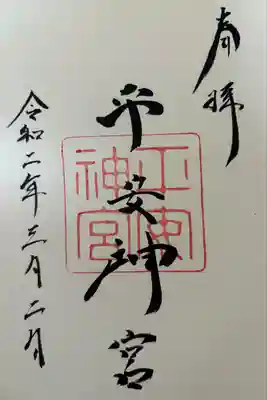 奉拝
平安神宮
平安神宮
令和二年三月二日